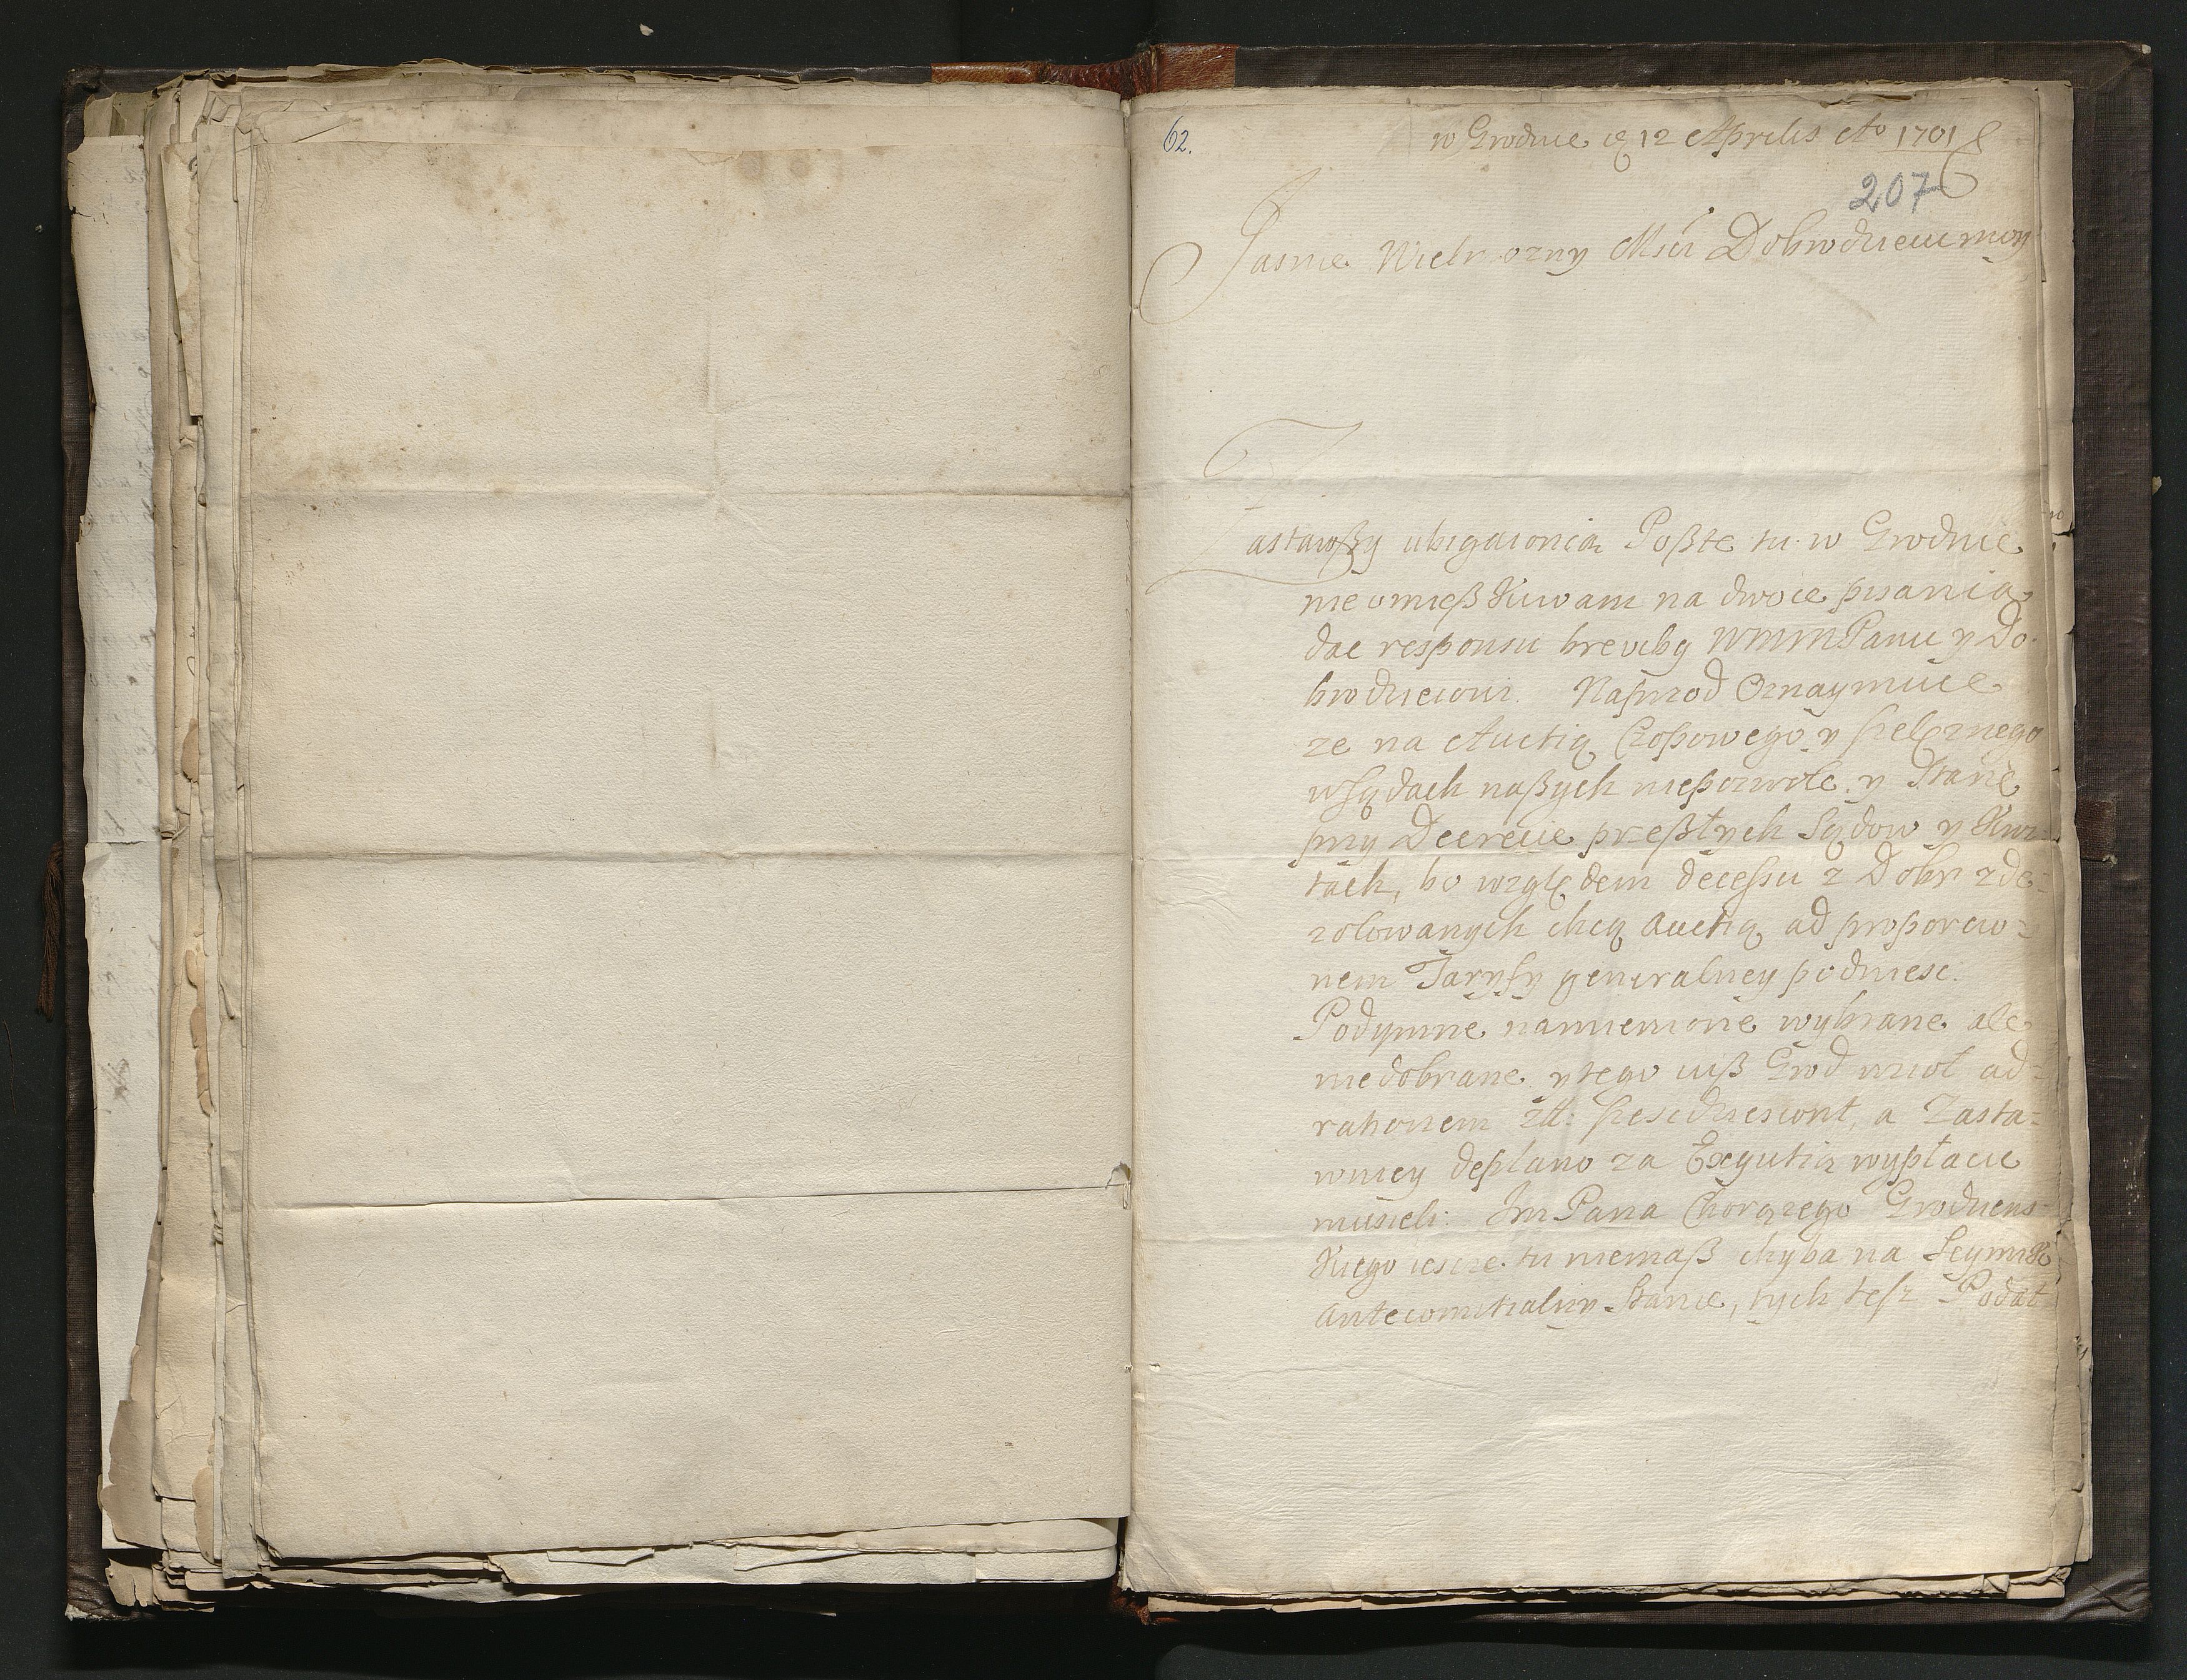 62.
w Grodnie 12 Aprilis Ao 1701
207
Jasnie Wielmozny Msci Dobrodzieiu moy
Zastawßy ubigaioncia Poßte tu w Grodnie
nie omießkiwam na dwoie pisania
dac responsu brevibg WMMPanu y Do
brodzieiowi. Naprzod Oznaymuie
ze na Auctią Czopowego y szelęznego
w Sądach naßych niepozwolę y Stanę
przy Decrecie przeßłych Sądow y Kwi=
tach, bo względem decessu z Dobr zde=
zolowanych chcą auctią ad proporcio=
nem Taryfy generalney podniesc.
Podymne namienione wybrane ale
niedobrane y tego iuß Grod wziol ad
rationem zł: szescdziesiont, a Zasta=
wnicy deplano za Exequtią wypłacic
musieli. Im Pana Chorązego Grodziens=
kiego iescze tu niemaß chyba na Seymik
Antecomitialny Stanie, tych tesz Podat